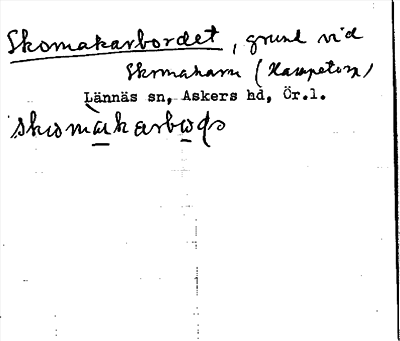 Skomakarbordet, grund vid
Skomakarn (Kampetorp)
Lännäs sn, Askers hd, Ör.l.
skomakarboḍ